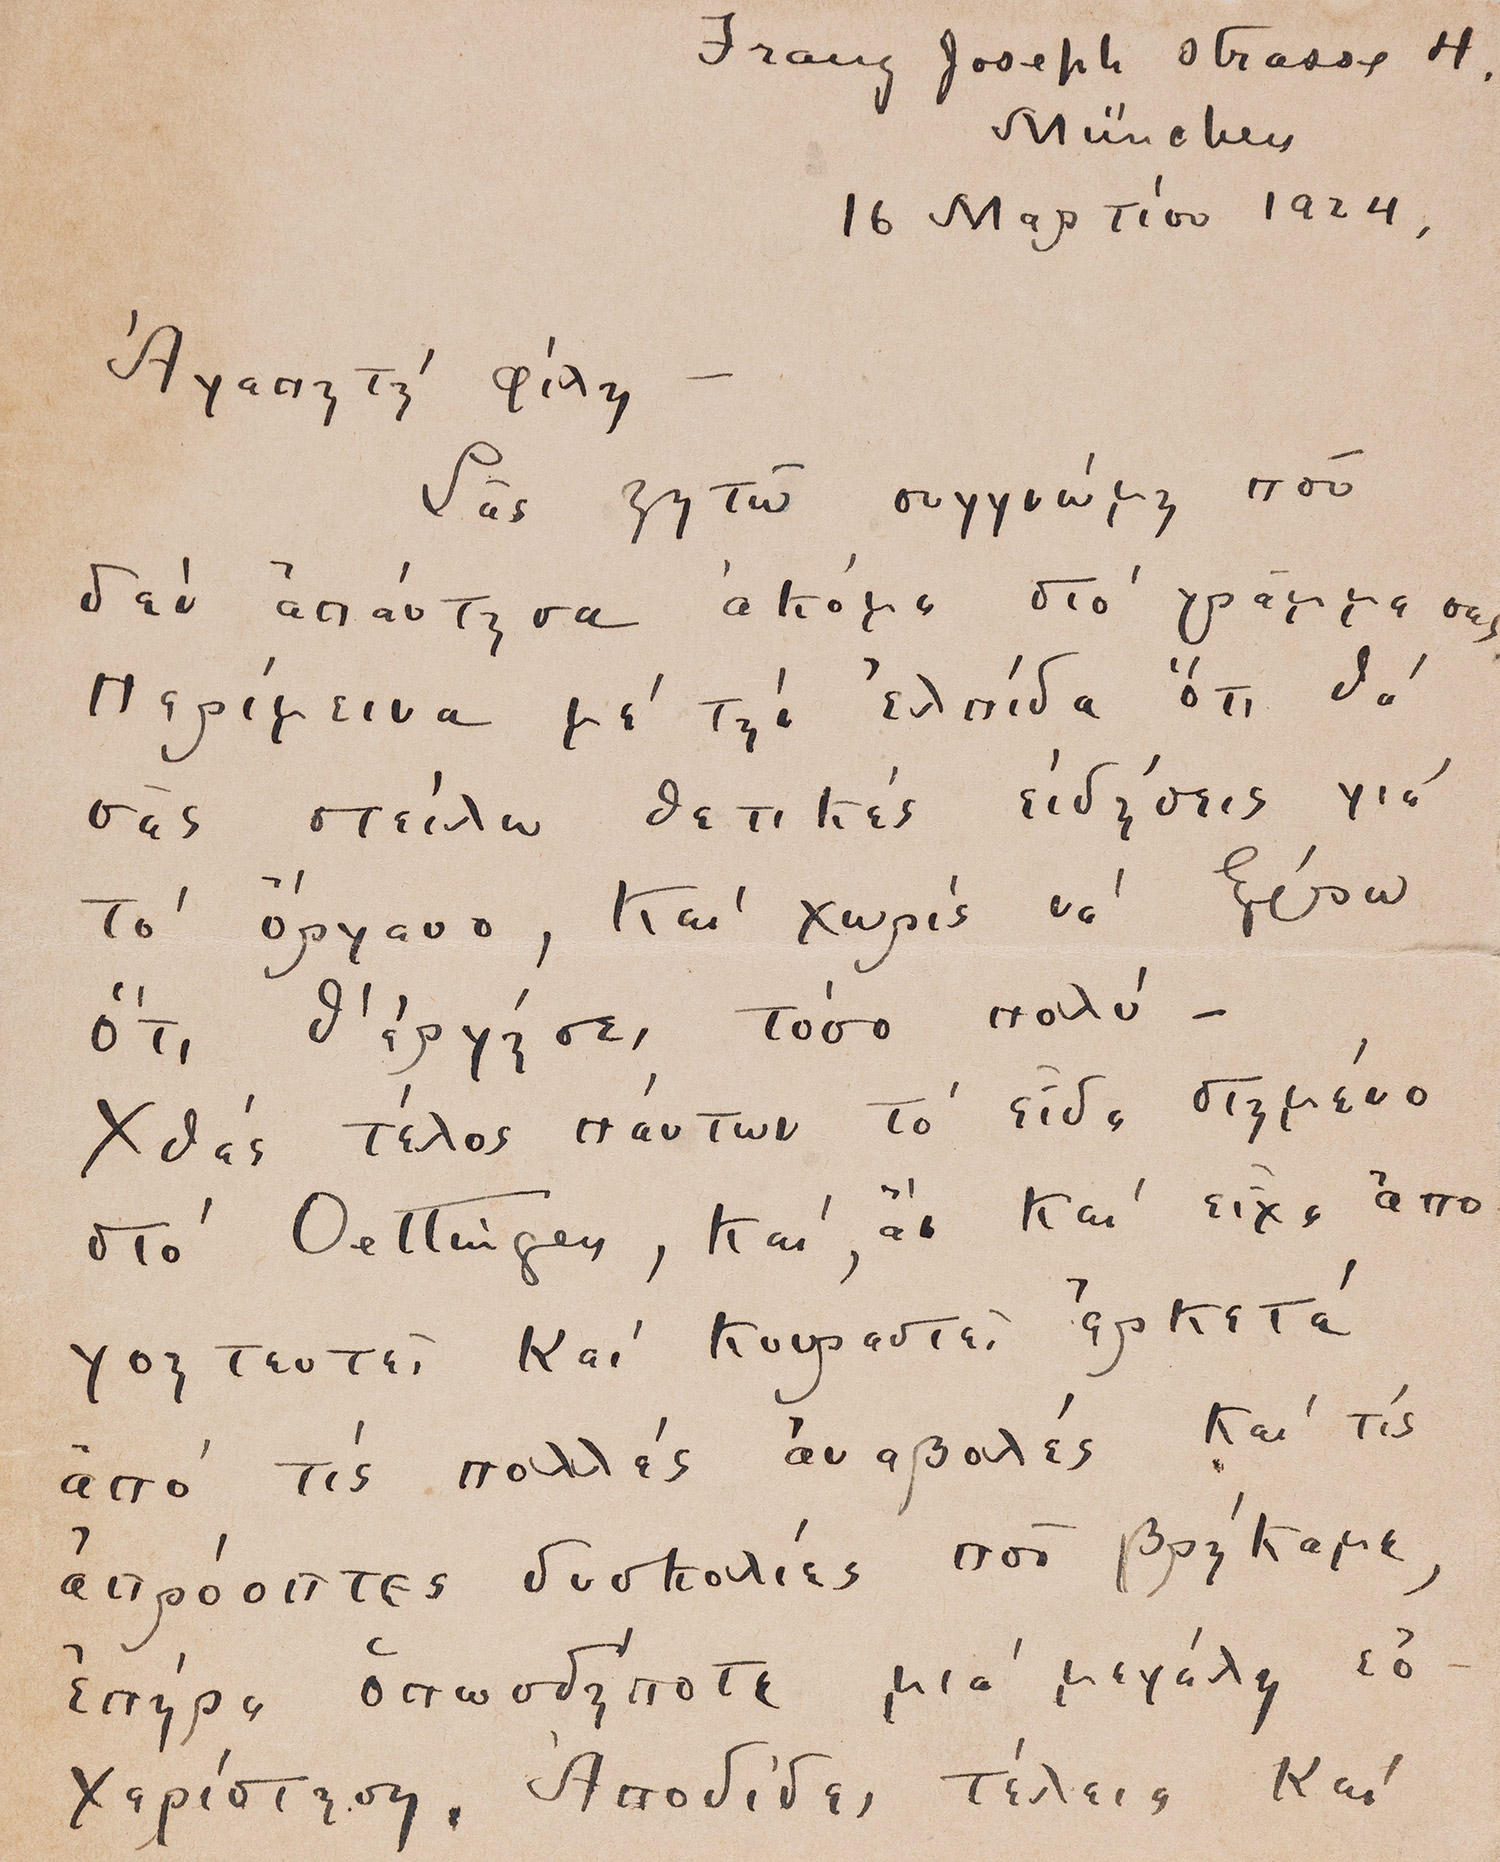 Franz Joseph Strasse 4.
München
16 Μαρτίου 1924,
Ἀγαπητή φίλη –
Σᾶς ζητῶ συγγνώμη ποῦ
δέν ἀπάντησα ἀκόμα στό γρᾶμμα σας
Περίμεινα μέ τήν ἐλπίδα ὅτι θά
σᾶς στείλω θετικές εἰδήσεις γιά
τό ὄργανο, καί χωρίς νά ξέρω
ὅτι θ' ἀργήσει τόσο πολύ –
Χθές τέλος πάντων τό εἶδα στημένο
στό Oettingen, καί, ἄν καί εἶχα ἀπο
γοητευτεῖ καί κουραστεῖ ἀρκετά
ἀπό τίς πολλές ἀναβολές καί τίς
ἀπρόοπτες δυσκολίες ποῦ βρήκαμε,
ἐπήρα ὁπωσδήποτε μιά μεγάλη εὐ-
χαρίστηση. Ἀποδίδει τέλεια καί